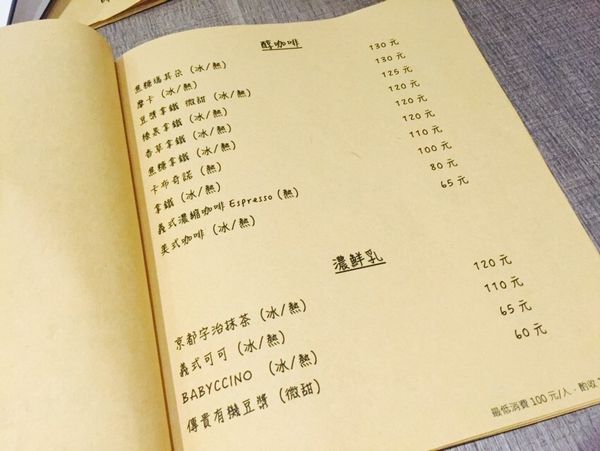 醇咖啡
焦糖瑪其朵 (冰/熱) 130 元
摩卡 (冰/熱) 130 元
豆漿拿鐵 微甜 (冰/熱) 125 元
榛果拿鐵 (冰/熱) 120 元
香草拿鐵 (冰/熱) 120 元
焦糖拿鐵 (冰/熱) 120 元
卡布奇諾 (熱) 110 元
拿鐵 (冰/熱) 100 元
義式濃縮咖啡 Espresso (熱) 80 元
美式咖啡 (冰/熱) 65 元
濃鮮乳
京都宇治抹茶 (冰/熱) 120 元
義式可可 (冰/熱) 110 元
BABYCCINO (冰/熱) 65 元
傳貴有機豆漿 (微甜) 60 元
最低消費 100 元/人，酌收